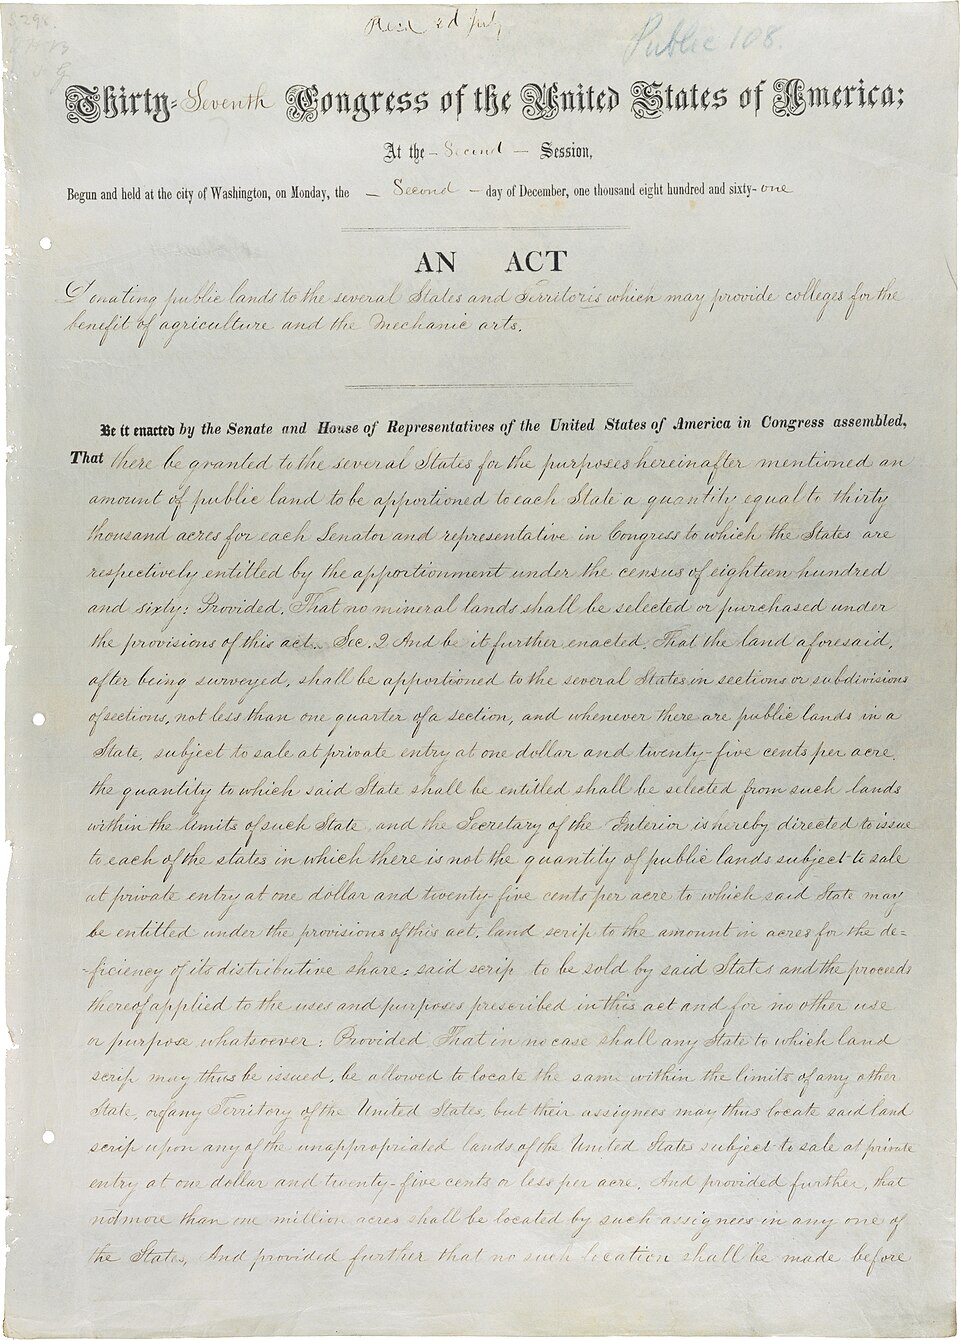 Public 108.
Thirty=Seventh Congress of the United States of America;
At the - Second - Session,
Begun and held at the city of Washington, on Monday, the - Second - day of December, one thousand eight hundred and sixty-one
AN ACT
Donating public lands to the several States and Territoris which may provide colleges for the
benefit of agriculture and the Mechanic arts.
Be it enacted by the Senate and House of Representatives of the United States of America in Congress assembled,
That there be granted to the several States for the purposes hereinafter mentioned an
amount of public land to be apportioned to each State a quantity equal to thirty
thousand acres for each Senator and representative in Congress to which the States are
respectively entitled by the apportionment under the census of eighteen hundred
and sixty: Provided, That no mineral lands shall be selected or purchased under
the provisions of this act. Sec. 2 And be it further enacted, That the land aforesaid,
after being surveyed, shall be apportioned to the several States in sections or subdivisions
of sections, not less than one quarter of a section, and whenever there are public lands in a
State, subject to sale at private entry at one dollar and twenty-five cents per acre,
the quantity to which said State shall be entitled shall be selected from such lands
within the limits of such State, and the Secretary of the Interior is hereby directed to issue
to each of the states in which there is not the quantity of public lands subject to sale
at private entry at one dollar and twenty-five cents per acre to which said State may
be entitled under the provisions of this act, land scrip to the amount in acres for the de=
-ficiency of its distributive share: said scrip to be sold by said States and the proceeds
thereof applied to the uses and purposes prescribed in this act and for no other use
or purpose whatsoever: Provided, That in no case shall any State to which land
scrip may thus be issued, be allowed to locate the same within the limits of any other
State, or of any Territory of the United States, but their assignees may thus locate said land
scrip upon any of the unappropriated lands of the United States subject to sale at private
entry at one dollar and twenty-five cents or less per acre. And provided further, that
not more than one million acres shall be located by such assignees in any one of
the States, And provided further that no such location shall be made before